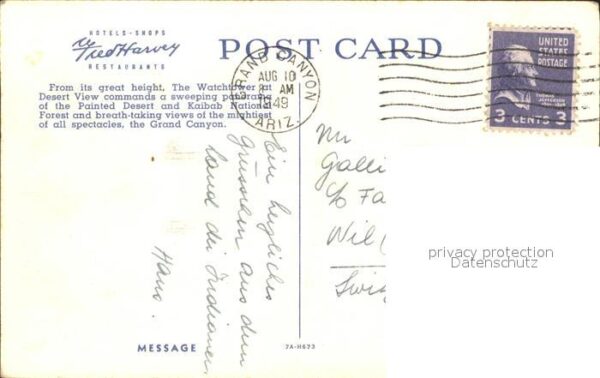 HOTELS · SHOPS
Fred Harvey
RESTAURANTS
POST CARD
From its great height, The Watchtower at
Desert View commands a sweeping panorama
of the Painted Desert and Kaibab National
Forest and breath-taking views of the mightiest
of all spectacles, the Grand Canyon.
GRAND CANYON
AUG 10
AM
1949
ARIZ.
UNITED
STATES
POSTAGE
THOMAS
JEFFERSON
3 CENTS 3
Ein herzliches
Grüsschen aus dem
Land der Indianer
Hans.
Mr
Galli
c/o Fa
Wil
Swi
privacy protection
Datenschutz
MESSAGE
7A-H673